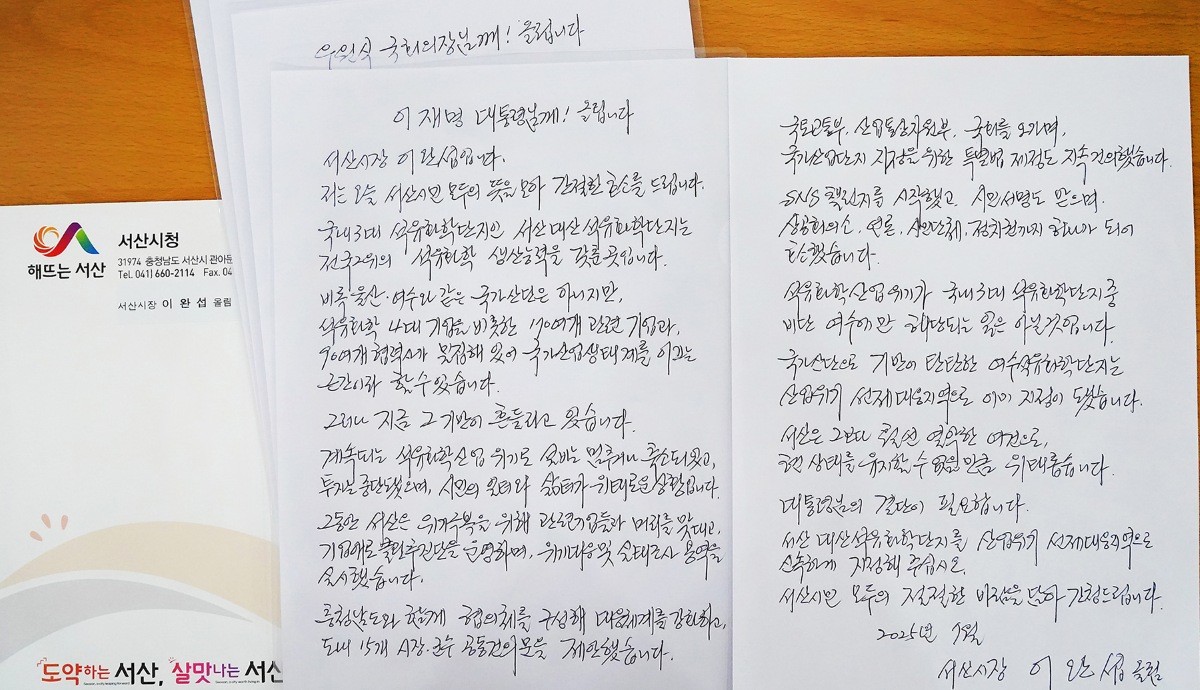 우원식 국회의장님께! 올립니다
이재명 대통령님께! 올립니다
서산시장 이완섭입니다.
저는 오늘 서산시민 모두의 뜻을 모아 간절한 호소를 드립니다.
국내 3대 석유화학단지인 서산 대산 석유화학단지는
전국 2위의 석유화학 생산능력을 갖춘 곳입니다.
비록 울산·여수와 같은 국가산단은 아니지만,
석유화학 4대 기업을 비롯한 70여개 관련 기업과,
90여개 협력사가 밀집해 있어 국가산업생태계를 이끄는
근간이라 할 수 있습니다.
그러나 지금 그 기반이 흔들리고 있습니다.
계속되는 석유화학산업 위기로 설비는 멈추거나 축소되었고,
투자는 중단됐으며, 시민의 일터와 삶터가 위태로운 상황입니다.
그동안 서산은 위기극복을 위해 관련기업들과 머리를 맞대고,
기업애로 풀인추진단을 운영하며, 위기대응 및 실태조사 용역을
실시했습니다.
충청남도와 함께 협의체를 구성해 대응체계를 강화하고,
도내 15개 시장·군수 공동건의문을 제안했습니다.
국토교통부, 산업통산자원부, 국회를 오가며,
국가산업단지 지정을 위한 특별법 제정도 지속 건의했습니다.
SNS 챌린지를 시작했고, 시민서명도 받으며,
상공회의소, 언론, 시민단체, 정치권까지 하나가 되어
호소했습니다.
석유화학산업 위기가 국내 3대 석유화학단지 중
비단 여수에만 해당되는 일은 아닐 것입니다.
국가산단으로 기반이 탄탄한 여수석유화학단지는
산업위기 선제대응지역으로 이미 지정이 됐습니다.
서산은 그보다 훨씬 열악한 여건으로,
현 상태를 유지할 수 없을 만큼 위태롭습니다.
대통령님의 결단이 필요합니다.
서산 대산석유화학단지를 산업위기 선제대응지역으로
신속하게 지정해 주십시오.
서산시민 모두의 절절한 바람을 담아 간청드립니다.
2025년 7월
서산시장 이완섭 올림
해뜨는 서산
서산시청
31974 충청남도 서산시 관아문
Tel. 041) 660-2114 Fax. 04
서산시장 이 완 섭 올림
도약하는 서산, 살맛나는 서산